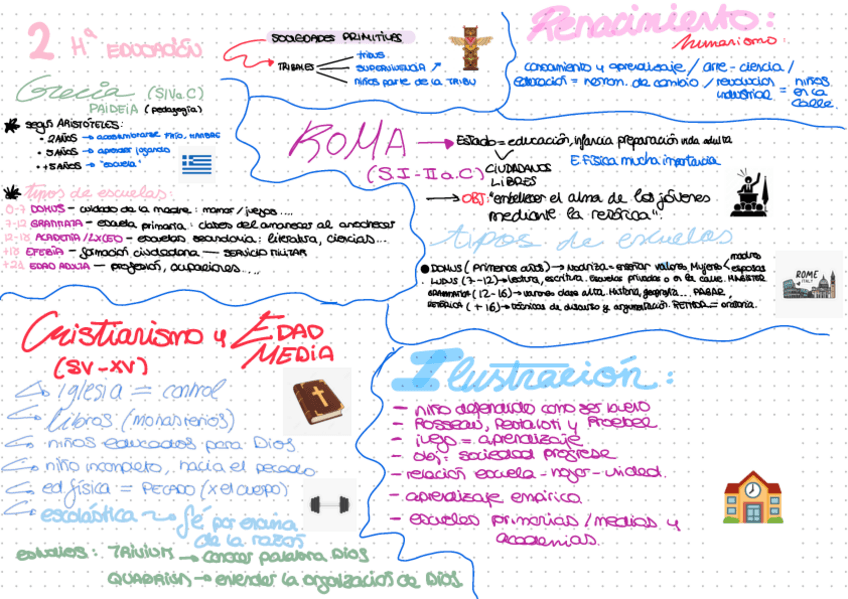 2 Hª EDUCACIÓN
SOCIEDADES PRIMITIVAS
TRIBALES
tribus
SUPERVIVENCIA
niños parte de la TRIBU
Renacimiento:
Humanismo:
conocimiento y aprendizaje / arte - ciencia /
educación = herram. de cambio / revolución industrial = niños en la calle.
Grecia (SIVa.C)
PAIDEIA (pedagogía)
según ARISTÓTELES:
• 2 AÑOS → acostumbrarse FRÍO, HAMBRE
• 5 AÑOS → aprender jugando
• +5 AÑOS → "escuela"
tipos de escuelas:
0-7 DOMUS - cuidado de la madre: mamar / juegos....
7-12 GRAMMATA - escuela primaria: clases del amanecer al anochecer
12-18 ACADEMIA / LICEO - escuelas secundaria: literatura, ciencias...
+18 EFEBIA - formación ciudadana — SERVICIO MILITAR
+21 EDAD ADULTA — profesión, ocupaciones.....
ROMA
(S.I - II a.C)
Estado = educación, infancia preparación vida adulta
CIUDADANOS
LIBRES
E. Física mucha importancia
→ OBJ: "embellecer el alma de los jóvenes
mediante la retórica".
tipos de escuelas
DOMUS (primeros años) → Nodriza = enseñar valores Mujeres madres esposas
LUDUS (7-12) → lectura, escritura. Escuelas privadas o en la calle. MAGISTER
GRAMMATICUS (12-16) → varones clase alta. Historia, geografía... PAGAR,
RETÓRICA (+16) → técnicas de discurso y argumentación. RETHOR = oratoria.
ROME
ITALY
Cristianismo y EDAD
MEDIA
(SV-XV)
Iglesia = control
libros (monasterios)
niños educados para Dios
niño incompleto, hacia el pecado
ed física = PECADO (x el cuerpo)
escolástica → fé por encima
de la razón
estudios: TRIVIUM → conocer palabra Dios
QUADRIUM → entender la organización de Dios
Ilustración:
- niño defendido como ser bueno
- Rosseau, Pestalozti y Froebel
- juego = aprendizaje
- obj = sociedad progrese
- relación escuela - hogar - unidad.
- aprendizaje empírico
- escuelas primarias / medias y
academias.